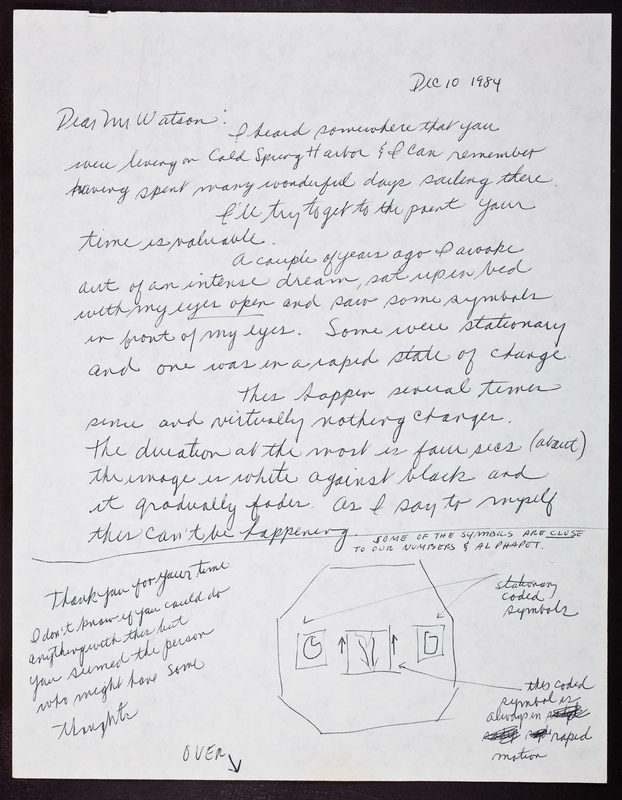 Dec 10 1984
Dear Mr Watson:
I heard somewhere that you
were living on Cold Spring Harbor & I can remember
having spent many wonderful days sailing there.
I'll try to get to the point your
time is valuable.
A couple of years ago I awoke
out of an intense dream, sat up in bed
with my eyes open and saw some symbols
in front of my eyes. Some were stationary
and one was in a rapid state of change.
This happen several times
since and virtually nothing changes.
The duration at the most is four secs (about)
the image is white against black and
it gradually fades. As I say to myself
this can't be happening.
SOME OF THE SYMBOLS ARE CLOSE
TO OUR NUMBERS & ALPHAPET.
Thank you for your time
I don't know if you could do
anything with this but
you seemed the person
who might have some
thoughts
stationary
coded
symbols
this coded
symbol is
always in
rapid
motion
OVER